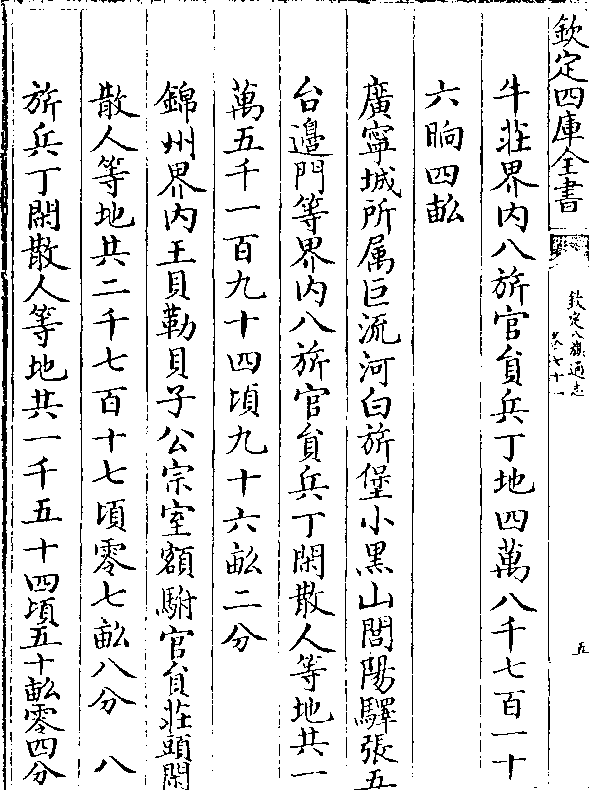 欽定四庫全書
欽定八旗通志
卷七十一
五
牛莊界内八旂官員兵丁地四萬八千七百一十
六晌四畝
廣寧城所屬巨流河白旂堡小黑山閭陽驛張五
台邊門等界内八旂官員兵丁閑散人等地共一
萬五千一百九十四頃九十六畝二分
錦州界内王貝勒貝子公宗室額駙官員莊頭閑
散人等地共二千七百十七頃零七畝八分　八
旂兵丁閑散人等地共一千五十四頃五十畝零四分